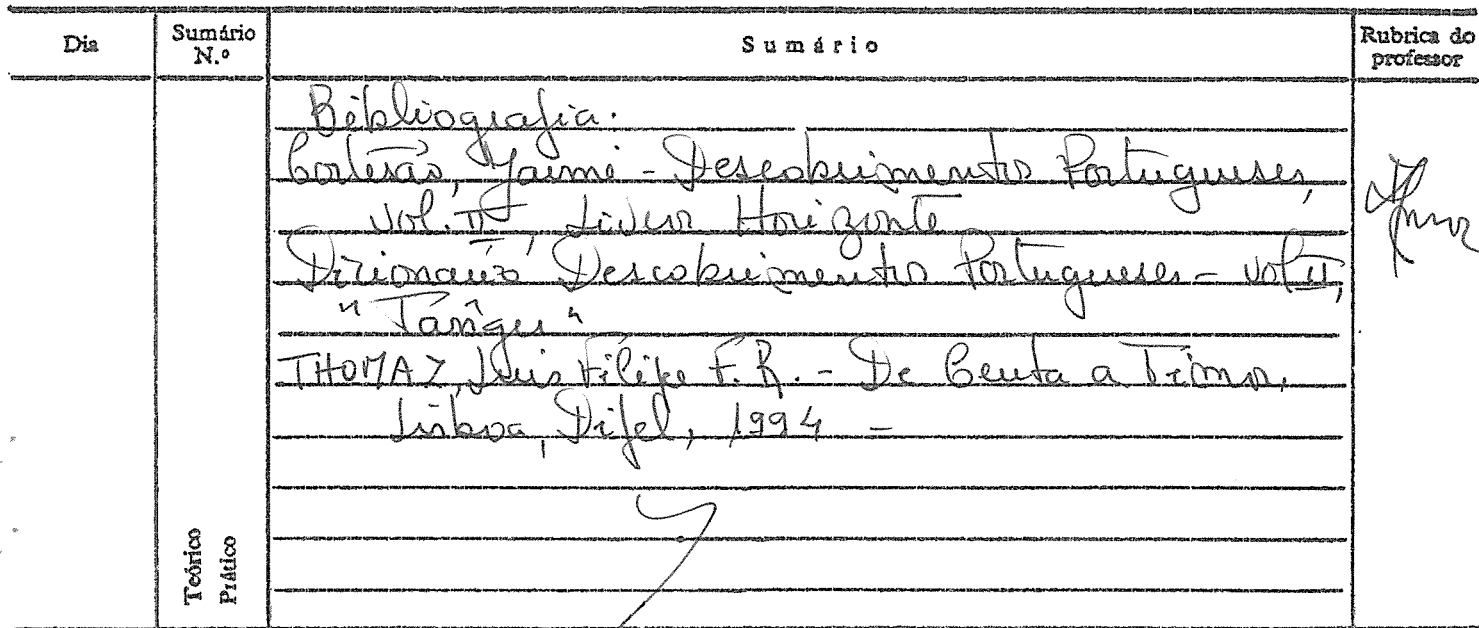 Dia
Sumário
N.º
Sumário
Rubrica do
professor
Bibliografia:
Cortesão, Jaime - Descobrimentos Portugueses,
vol. II, Livros Horizonte
Dicionário Descobrimentos Portugueses - vol II,
"Tânger"
THOMAZ, Luis Filipe F. R. - De Ceuta a Timor,
Lisboa, Difel, 1994 -
Teórico
Prático